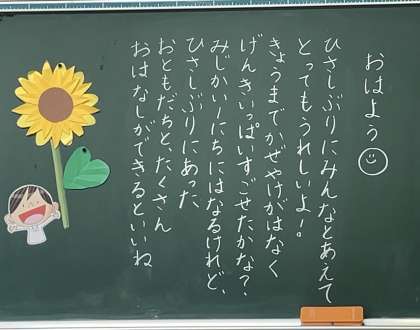 おはよう
ひさしぶりにみんなとあえて
とってもうれしいよ！
きょうまでかぜやけがはなく
げんきいっぱいすごせたかな？
みじかい一にちにはなるけれど、
ひさしぶりにあった
おともだちと、たくさん
おはなしができるといいね